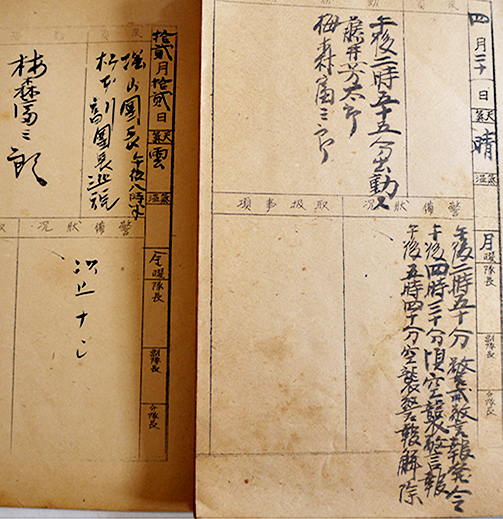 四月三十日 天氣 晴 氣温
午後二時五十五分出動ス
藤井芳太郎
梅森冨三郎
警備狀況
取扱事項
月曜 隊長 副隊長 分隊長
午後二時五十分 警戒警報発令
午後四時三十分頃空襲警報
午後五時四十分空襲警報解除
拾貳月拾貳日 天氣 雲 氣温
團長午後八時
副團長巡視
梅森冨三郎
警備狀況
金曜 隊長 副隊長 分隊長
ナシ